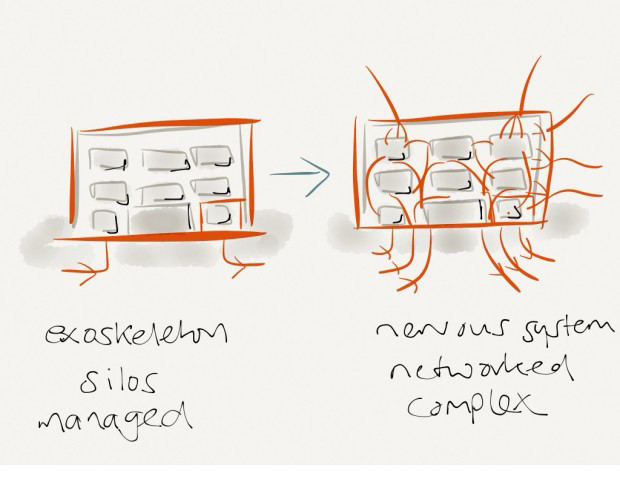 exoskeleton
silos
managed
nervous system
networked
complex